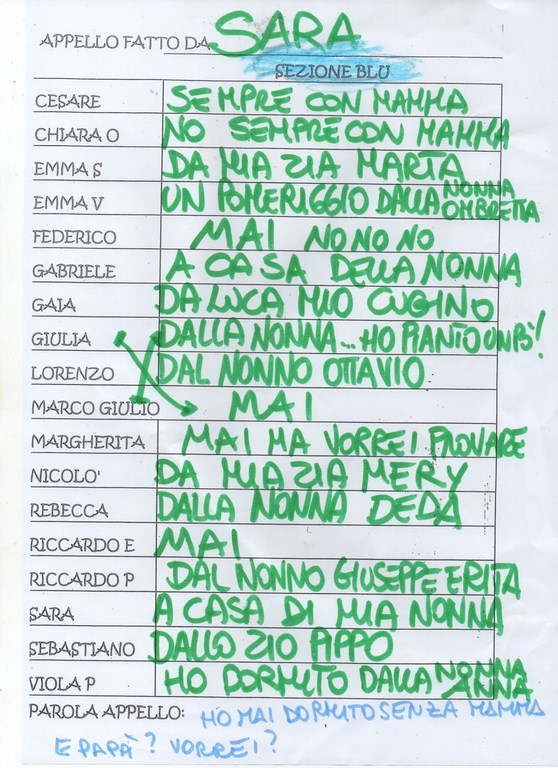 APPELLO FATTO DA SARA
SEZIONE BLU
CESARE SEMPRE CON MAMMA
CHIARA O NO SEMPRE CON MAMMA
EMMA S DA MIA ZIA MARTA
EMMA V UN POMERIGGIO DALLA NONNA OMBRETTA
FEDERICO MAI NO NO NO
GABRIELE A CASA DELLA NONNA
GAIA DA LUCA MIO CUGINO
GIULIA DALLA NONNA... HO PIANTO UN PÒ!
LORENZO DAL NONNO OTTAVIO
MARCO GIULIO MAI
MARGHERITA MAI MA VORREI PROVARE
NICOLO' DA MIA ZIA MERY
REBECCA DALLA NONNA DEDA
RICCARDO E MAI
RICCARDO P DAL NONNO GIUSEPPE E RITA
SARA A CASA DI MIA NONNA
SEBASTIANO DALLO ZIO PIPPO
VIOLA P HO DORMITO DALLA NONNA ANNA
PAROLA APPELLO: HO MAI DORMITO SENZA MAMMA
E PAPÀ? VORREI?